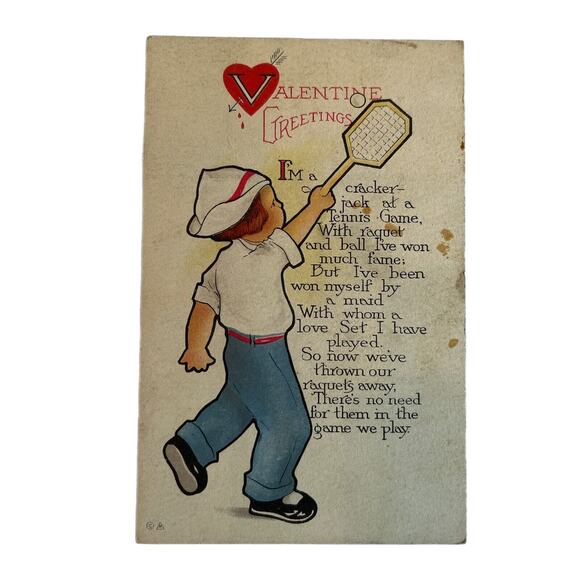 VALENTINE
GREETINGS
I'M a cracker-
jack at a
Tennis Game,
With raquet
and ball I've won
much fame;
But I've been
won myself by
a maid
With whom a
love Set I have
played.
So now we've
thrown our
raquets away,
There's no need
for them in the
game we play.
©